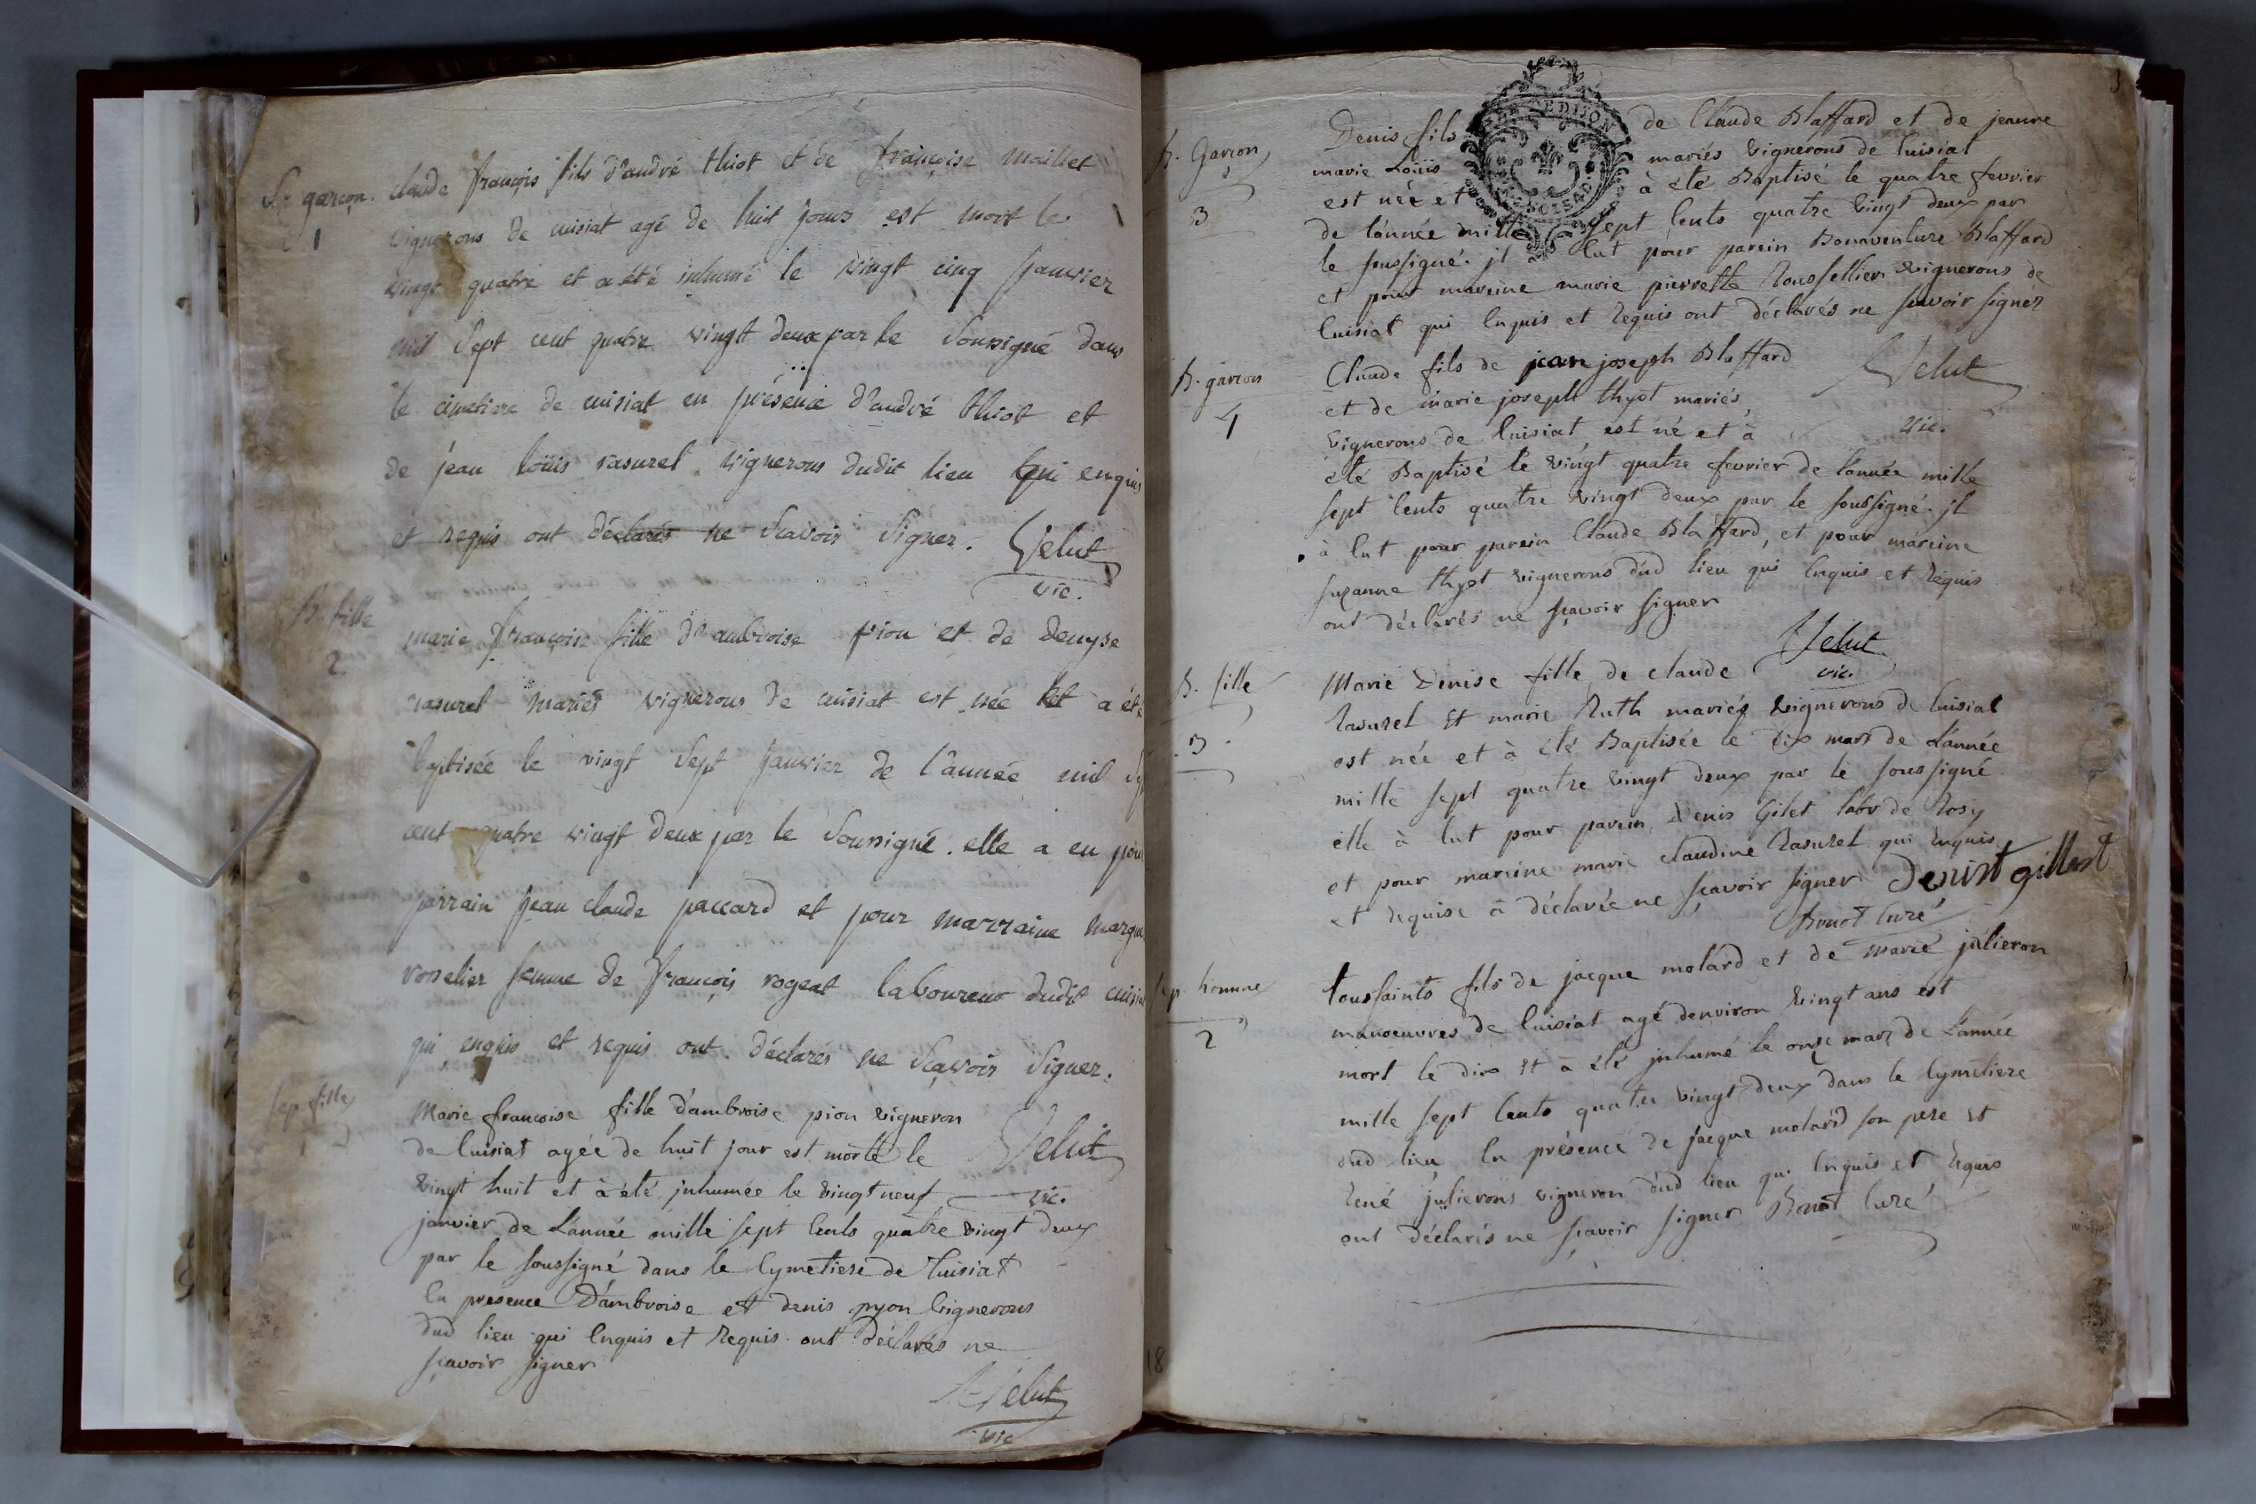 S. garçon.
1
claude françois fils d'andré thiot et de françoise maillet
vignerons de cuisiat agé de huit jours est mort le
vingt quatre et a été inhumé le vingt cinq janvier
mil sept cent quatre vingt deux par le soussigné dans
le cimetiere de cuisiat en présence d'andré thiot et
de jean loüis rasurel vignerons dudit lieu qui enquis
et requis ont déclarés ne scavoir signer. Velut
vic.
B. fille
2
marie françoise fille d'ambroise pion et de denyse
rasurel mariés vignerons de cuisiat est née et a été
baptisée le vingt sept janvier de l'année mil
cent quatre vingt deux par le soussigné. elle a eu pour
parrain jean claude paccard et pour marraine
rosselier femme de françois rogeat laboureur dudit
qui enquis et requis ont déclarés ne sçavoir signer.
sep. fille
1
Marie francoise fille d'ambroise pion vigneron
de Cuisiat agée de huit jour est morte le Velut
vingt huit et à été jnhumée le vingt neuf vic.
janvier de L'année mille sept Cents quatre vingt deux
par le soussigné dans le Cymetiere de Cuisiat
En presence D'ambroise et denis pyon vignerons
dud lieu qui Enquis et Requis ont déclarés ne
sçavoir signer
Velut
vic
3
B. Garcon
3
Denis fils de Claude Blaffard et de jeanne
marie Loüis mariés vignerons de Cuisiat
est née et à été Baptisé le quatre fevrier
de l'année mille sept Cents quatre vingt deux par
le soussigné. jl à Eut pour parein Bonaventure Blaffard
et pour mareine marie pierrette Roussellier vignerons de
Cuisiat qui Enquis et Requis ont déclarés ne sçavoir signer
Velut
vic.
B. garcon
4
Claude fils de jean joseph Blaffard
et de marie joseph thyot mariés
vignerons de Cuisiat est né et à
été Baptisé le vingt quatre fevrier de l'année mille
sept Cents quatre vingt deux par le soussigné. jl
à Eut pour parein Claude Blaffard, et pour mareine
suzanne thyot vignerons dud lieu qui Enquis et Requis
ont déclarés ne sçavoir signer
Velut
vic.
B. fille
Marie Denise fille de claude
Rasurel Et marie Ruth mariés vignerons de Cuisiat
est née et à été Baptisée le Dix mars de L'année
mille sept quatre vingt deux par le soussigné
elle à Eut pour parein Denis Gilet labr de Rosy
et pour mareine marie claudine Rasurel qui Enquis
et Requise à déclarée ne sçavoir signer Denist gillest
Bonot Curé
sep. homme
2
toussaints fils de jacque molard et de marie julieron
manoeuvres de Cuisiat agé denviron vingt ans est
mort le dix Et à été jnhumé le onze mars de L'année
mille sept Cents quater vingt deux dans le Cymetiere
dud lieu En présence de jacque molard son pere Et
René julierons vigneron dud lieu qui Enquis et Requis
ont déclarés ne sçavoir signer Bonot Curé
18